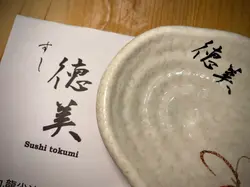 すし
徳美
Sushi tokumi
徳美